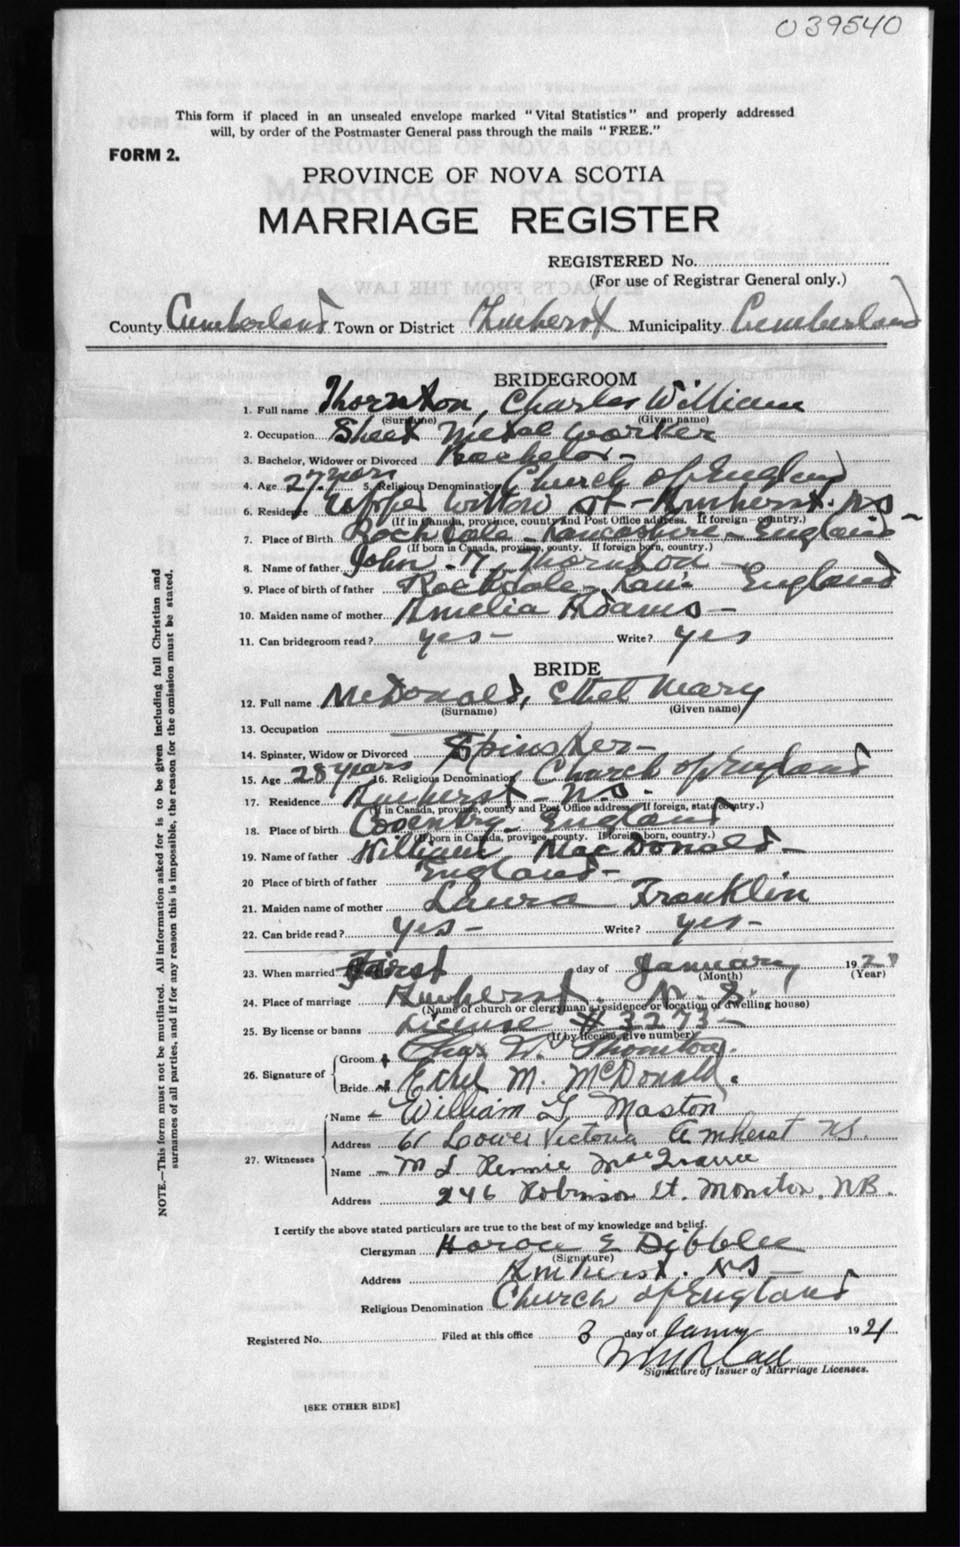 039540
This form if placed in an unsealed envelope marked "Vital Statistics" and properly addressed
will, by order of the Postmaster General pass through the mails "FREE."
FORM 2.
PROVINCE OF NOVA SCOTIA
MARRIAGE REGISTER
REGISTERED No.
(For use of Registrar General only.)
County Cumberland Town or District Amherst Municipality Cumberland
BRIDEGROOM
1. Full name Thornton, Charles William
(Surname) (Given name)
2. Occupation Sheet Metal Worker
3. Bachelor, Widower or Divorced Bachelor -
4. Age 27 years 5. Religious Denomination Church of England
6. Residence Upper Willow St - Amherst. NS
(If in Canada, province, county and Post Office address. If foreign country.)
7. Place of Birth Rochdale - Lancashire - England
(If born in Canada, province, county. If foreign born, country.)
8. Name of father John T. Thornton -
9. Place of birth of father Rochdale - Lan: England
10. Maiden name of mother Amelia Adams -
11. Can bridegroom read? yes - Write? yes
BRIDE
12. Full name McDonald, Ethel Mary
(Surname) (Given name)
13. Occupation
14. Spinster, Widow or Divorced Spinster -
15. Age 28 years 16. Religious Denomination Church of England
17. Residence Amherst - N.S.
(If in Canada, province, county and Post Office address. If foreign, state country.)
18. Place of birth Coventry - England
(If born in Canada, province, county. If foreign born, country.)
19. Name of father William MacDonald -
20 Place of birth of father England -
21. Maiden name of mother Laura Franklin
22. Can bride read? yes - Write? yes -
23. When married First day of January 192
(Month) (Year)
24. Place of marriage Amherst. N. S.
(Name of church or clergyman's residence or location of dwelling house)
25. By license or banns License # 3273 -
(If by license, give number)
26. Signature of Groom Chas W. Thornton.
Bride Ethel M. McDonald.
27. Witnesses Name William G Maston
Address 61 Lower Victoria Amherst NS.
Name M L Rennie
Address 246 Robinson St. Moncton. NB.
I certify the above stated particulars are true to the best of my knowledge and belief.
Clergyman Horace E Dibblee
(Signature)
Address Amherst. NS -
Religious Denomination Church of England
Registered No. Filed at this office 3 day of Jany 1921
Signature of Issuer of Marriage Licenses.
[SEE OTHER SIDE]
NOTE.—This form must not be mutilated. All information asked for is to be given including full Christian and
surnames of all parties, and if for any reason this is impossible, the reason for the omission must be stated.